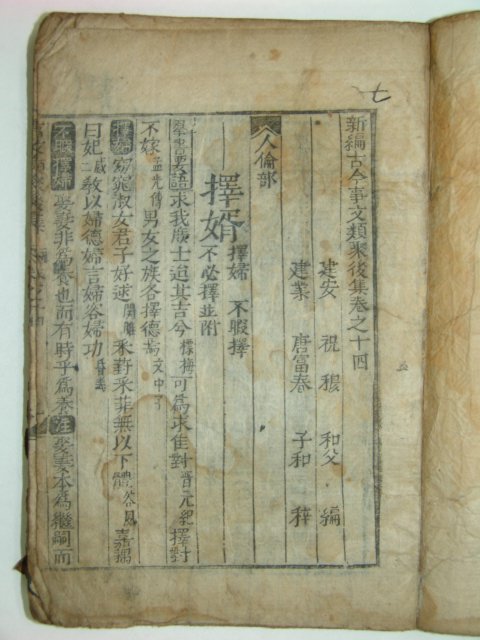 七
新編古今事文類聚後集卷之十四
建安 祝穆 和父 編
建業 唐富春 子和 梓
人倫部
擇婿 擇婦 不暇擇
不必擇並附
羣書要語求我庶士迨其吉兮摽梅可為求佳對晉元紀擇對
不嫁孟光傳男女之族各擇德焉文中子
擇婦窈窕淑女君子好逑關雎采葑采菲無以下體谷風
曰妃教以婦德婦言婦容婦功昏義
不暇擇婦娶妻非為養也而有時乎為養注娶妻本為繼嗣而